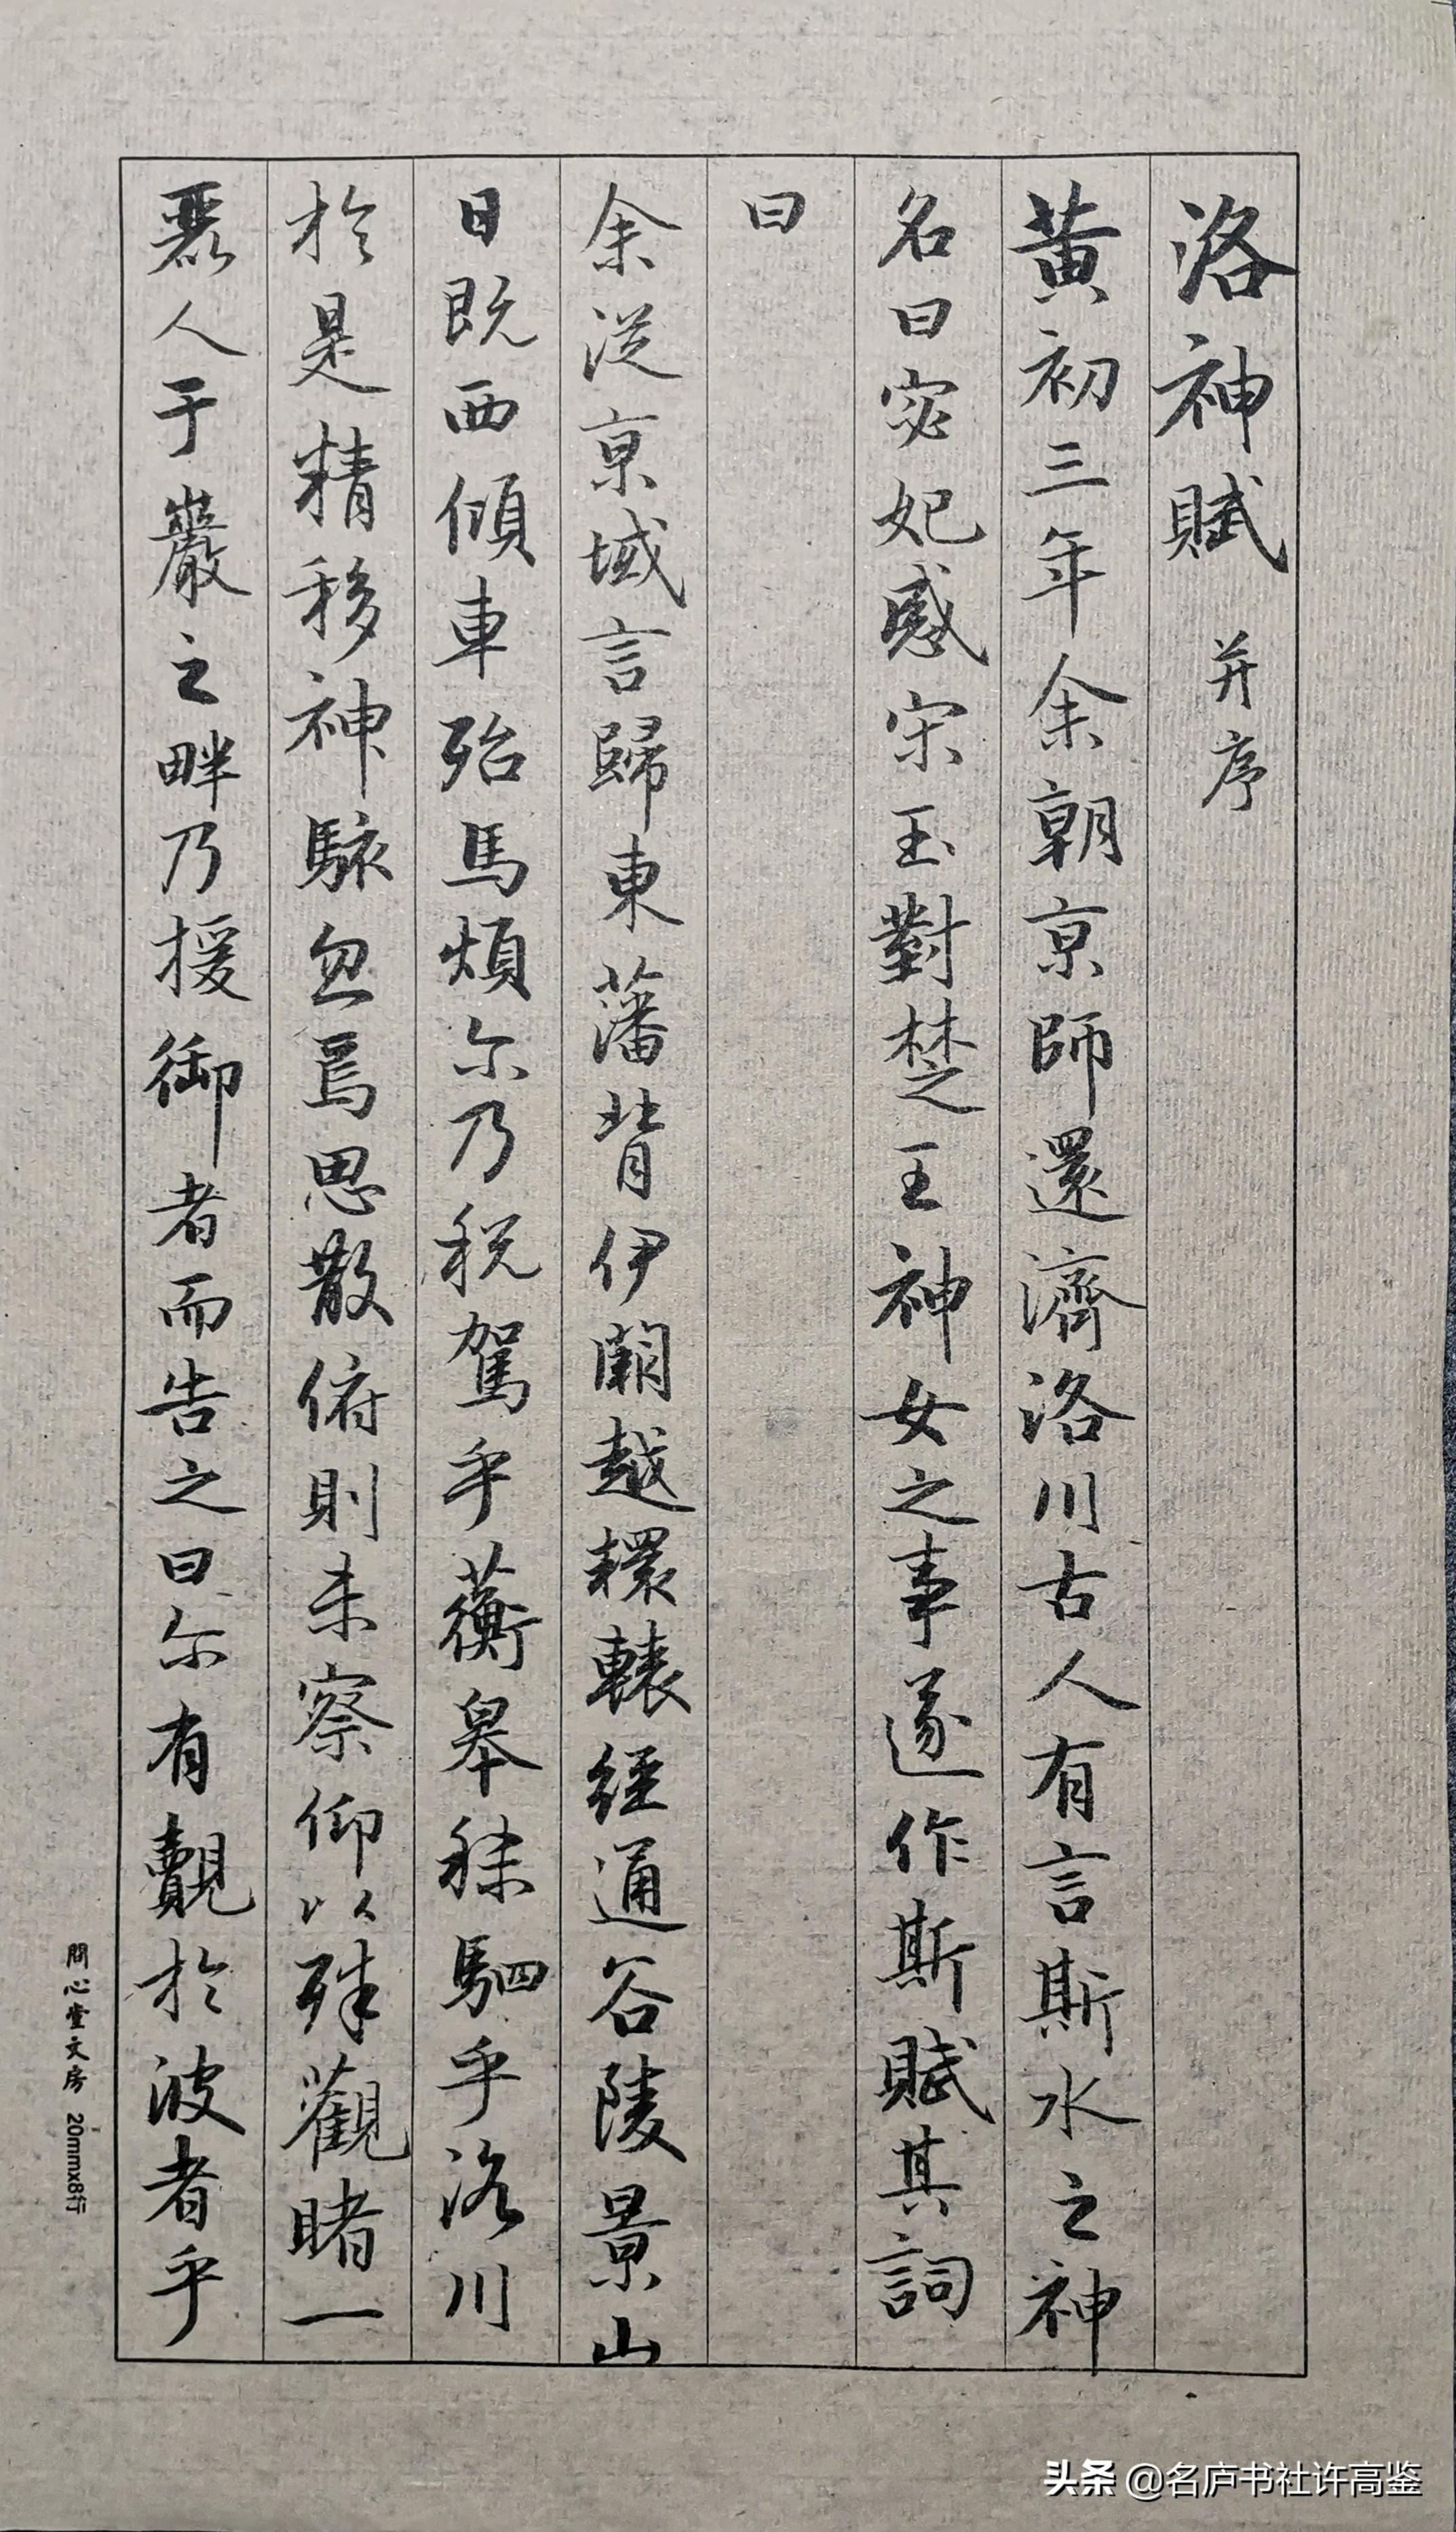 洛神賦 并序
黃初三年余朝京師還濟洛川古人有言斯水之神
名曰宓妃感宋玉對楚王神女之事遂作斯賦其詞
曰
余從京域言歸東藩背伊闕越轘轅經通谷陵景山
日既西傾車殆馬煩尔乃税駕乎蘅皋秣駟乎洛川
於是精移神駭忽焉思散俯則未察仰以殊觀睹一
麗人于巖之畔乃援御者而告之曰尔有覿於波者乎
問心堂文房 20mmx8行
头条 @名庐书社许高鉴